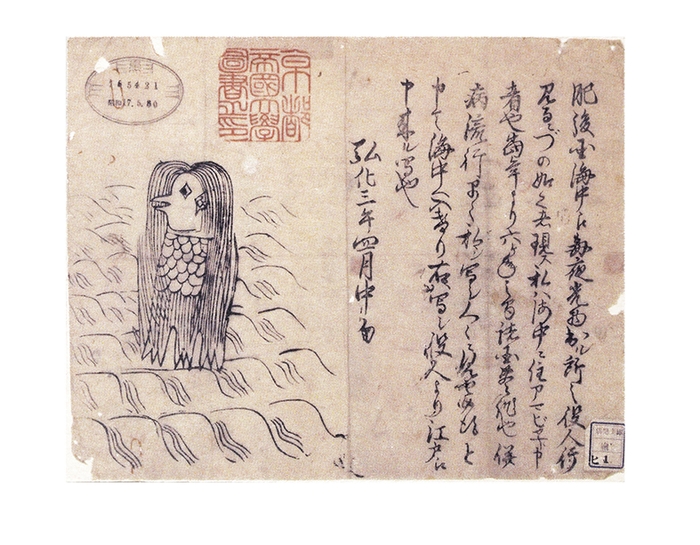 肥後国海中え毎夜光物出ル所之役人行
見るニづの如く者現ス私ハ海中ニ住アマビヱト申
者也當年より六ヶ年之間諸国豊作也併
病流行早々私シ写シ人々ニ見せ候得と
申て海中へ入けり右写シ役人より江戸え
申来ル写也
弘化三年四月中旬
京都
帝國大學
圖書之印
165421
昭和17.5.30